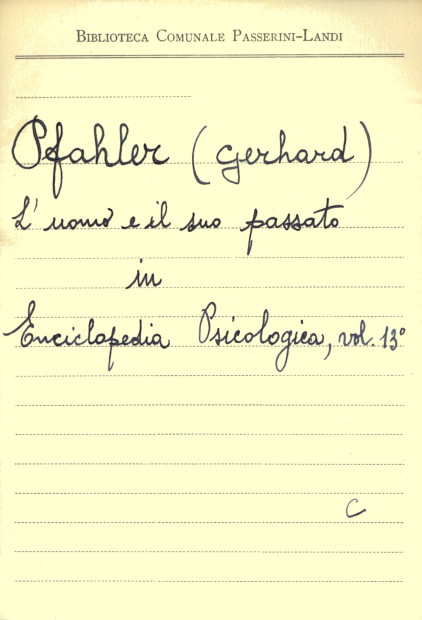 Biblioteca Comunale Passerini-Landi
Pfahler (Gerhard)
L'uomo e il suo passato
in
Enciclopedia Psicologica, vol. 13°
C